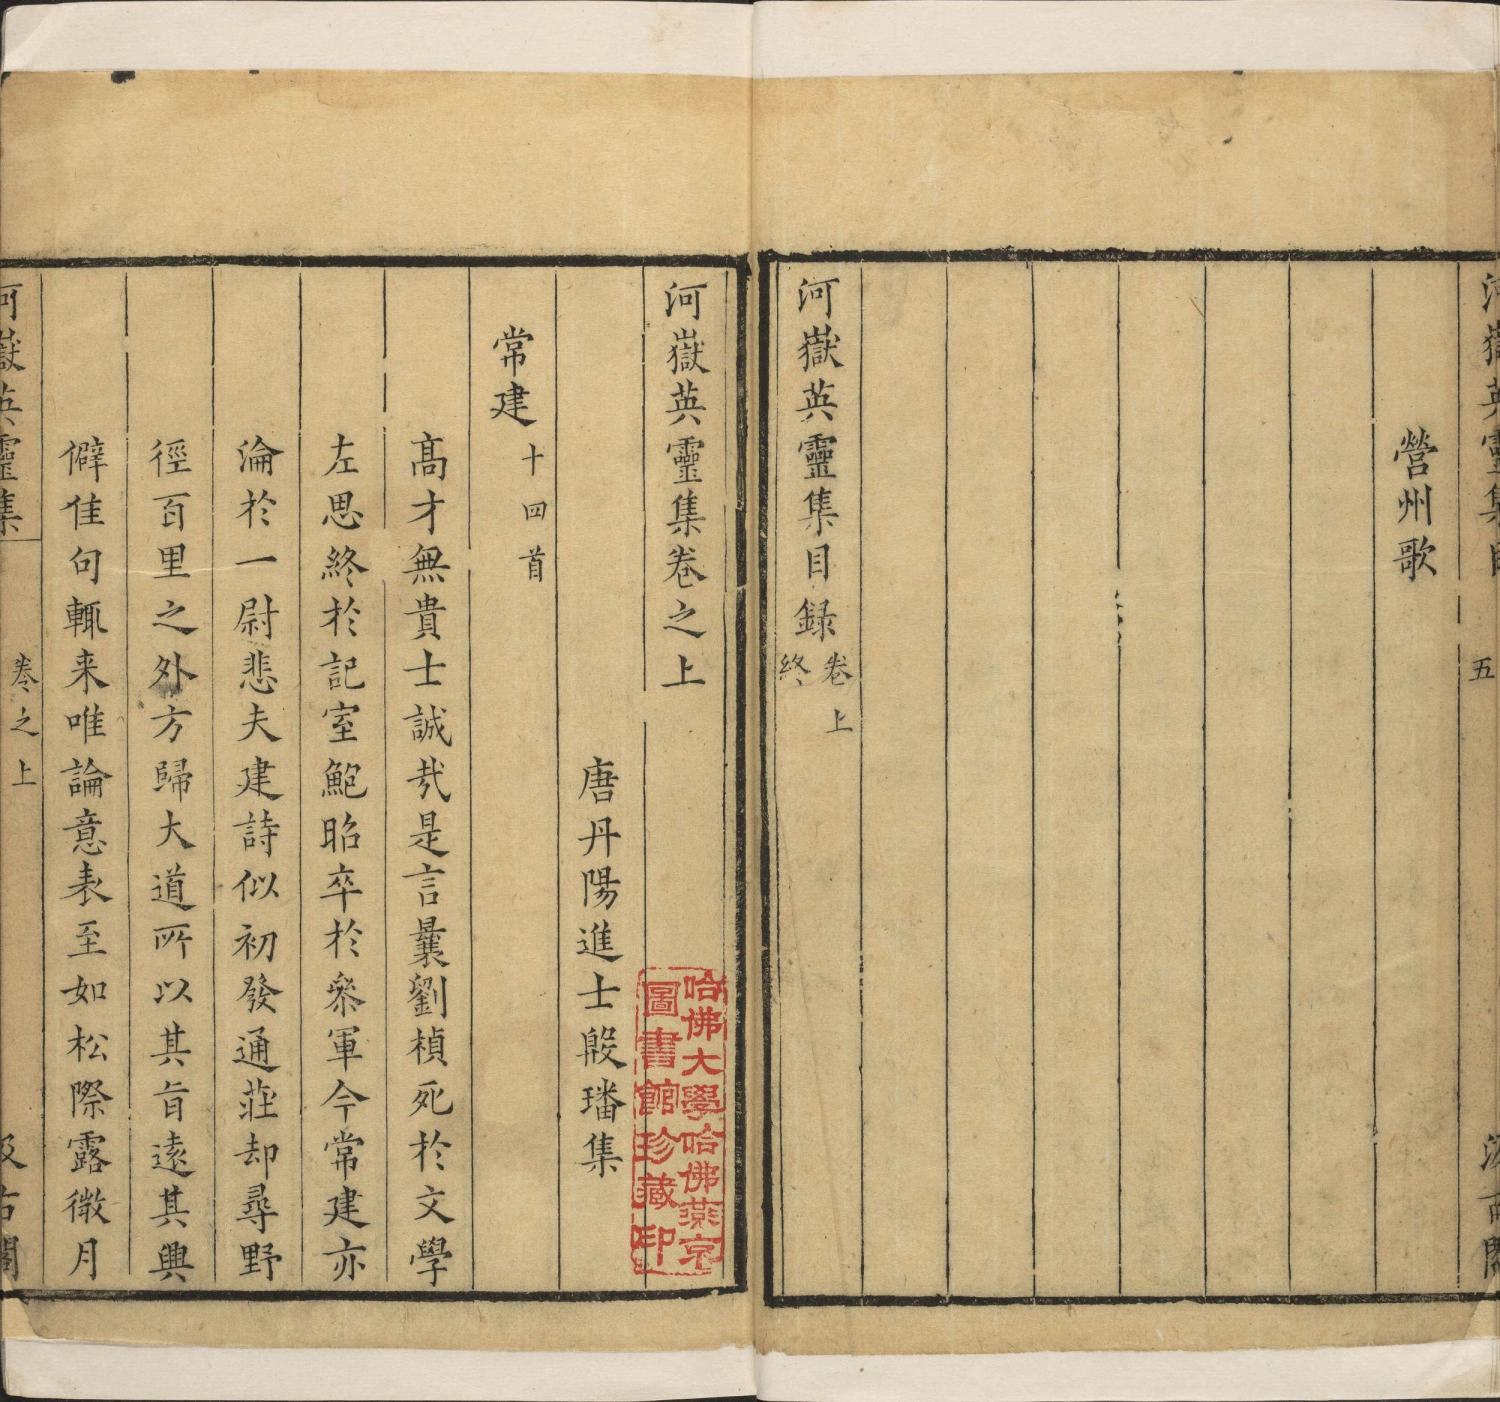 河嶽英靈集目
五
汲古閣
營州歌
河嶽英靈集目録卷上
終
河嶽英靈集卷之上
唐丹陽進士殷璠集
哈佛大學哈佛燕京
圖書館珍藏印
常建十四首
高才無貴士誠哉是言曩劉楨死於文學
左思終於記室鮑昭卒於參軍今常建亦
淪於一尉悲夫建詩似初發通莊却尋野
徑百里之外方歸大道所以其旨遠其興
僻佳句輒来唯論意表至如松際露微月
河嶽英靈集
卷之上
汲古閣